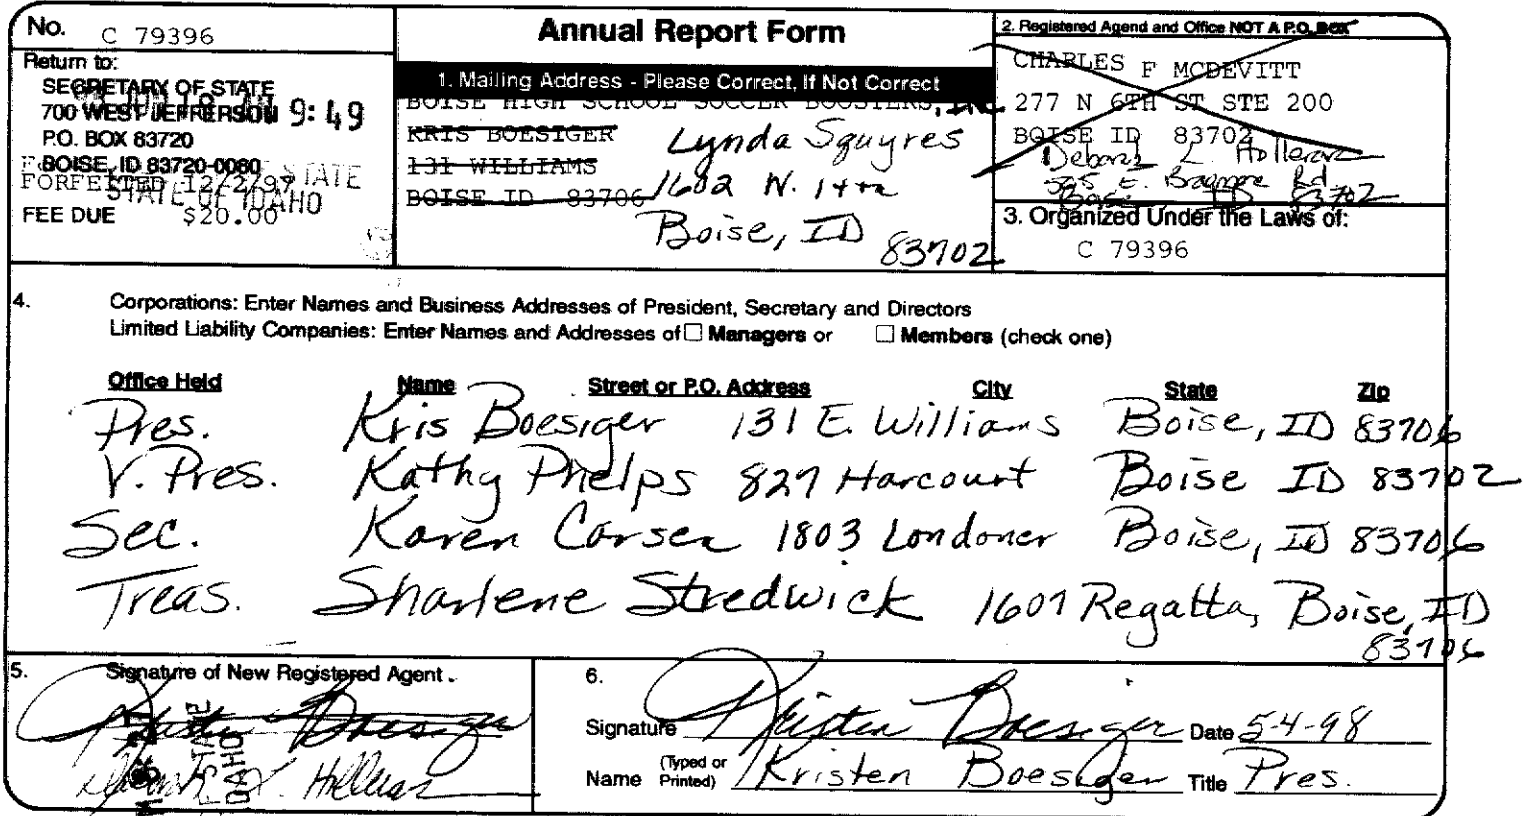 No. C 79396
Return to:
SECRETARY OF STATE
700 WEST JEFFERSON
9:49
P.O. BOX 83720
BOISE, ID 83720-0080
STATE
FORFEITED 12/2/97
STATE OF IDAHO
FEE DUE $20.00
Annual Report Form
1. Mailing Address - Please Correct, If Not Correct
BOISE HIGH SCHOOL SOCCER BOOSTERS, INC
KRIS BOESIGER
131 WILLIAMS
BOISE ID 83706
Lynda Squyres
1602 N. 14th
Boise, ID
83702
2. Registered Agend and Office NOT A P.O. BOX
CHARLES F MCDEVITT
277 N 6TH ST STE 200
BOISE ID 83702
Deborah L.
E. Rd
83702
3. Organized Under the Laws of:
C 79396
4. Corporations: Enter Names and Business Addresses of President, Secretary and Directors
Limited Liability Companies: Enter Names and Addresses of ☐ Managers or ☐ Members (check one)
Office Held Name Street or P.O. Address City State Zip
Pres. Kris Boesiger 131 E. Williams Boise, ID 83706
V. Pres. Kathy Phelps 827 Harcourt Boise ID 83702
Sec. Karen Corsen 1803 Londoner Boise, ID 83706
Treas. Sharlene Stredwick 1607 Regatta, Boise, ID
83706
5. Signature of New Registered Agent.
Kristen Boesiger
6.
Signature Kristen Boesiger Date 5-4-98
Name (Typed or Printed) Kristen Boesiger Title Pres.